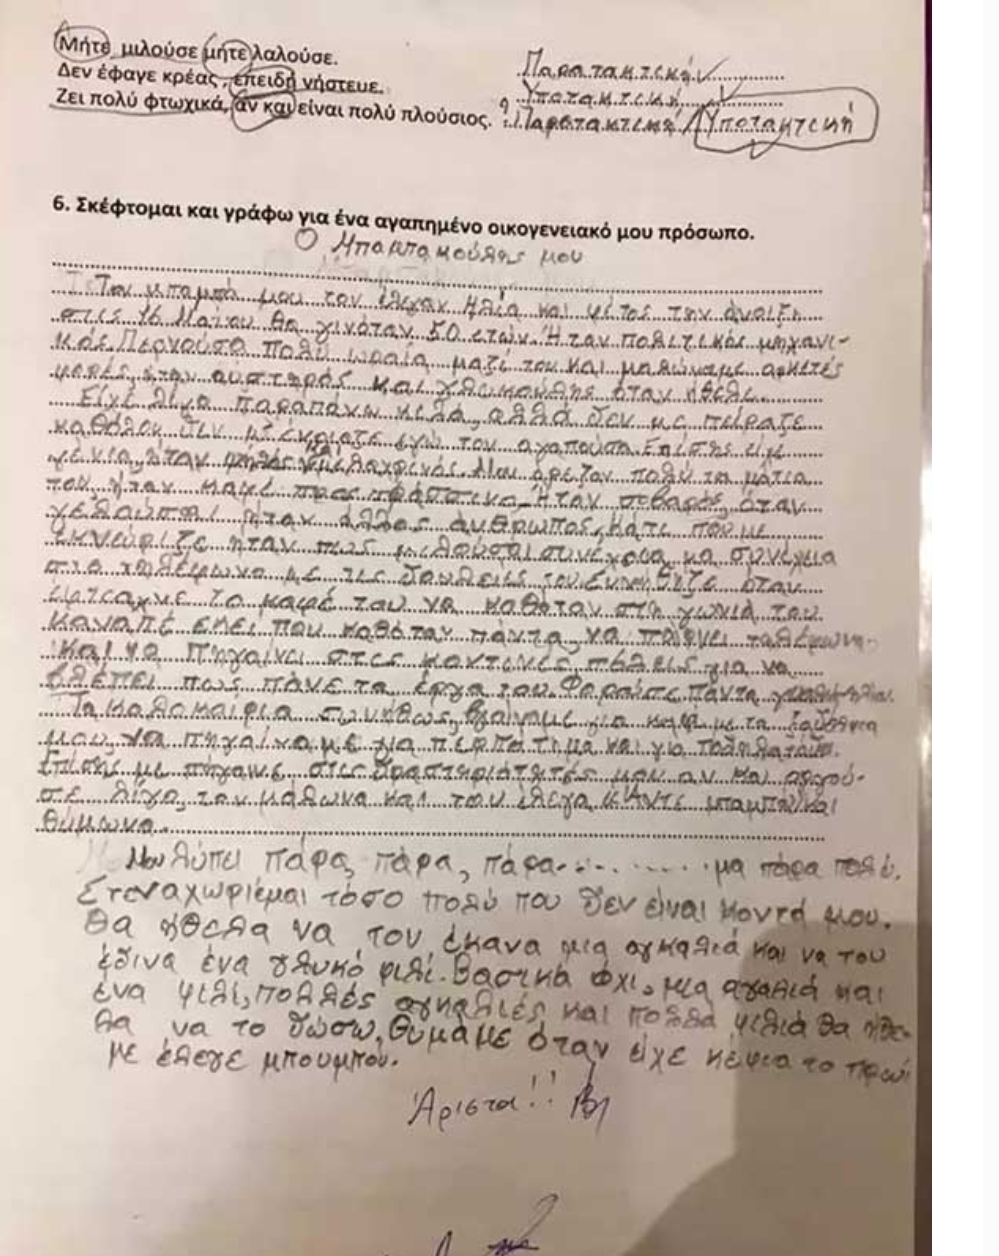 Μήτε μιλούσε μήτε λαλούσε. Παρατακτική
Δεν έφαγε κρέας, επειδή νήστευε. Υποτακτική
Ζει πολύ φτωχικά, αν και είναι πολύ πλούσιος. Παρατακτική / Υποτακτική
6. Σκέφτομαι και γράφω για ένα αγαπημένο οικογενειακό μου πρόσωπο.
Ο Μπαμπακούλης μου
Τον μπαμπά μου τον έλεγαν Ηλία και φέτος την άνοιξη
στις 16 Μαΐου θα γινόταν 50 ετών. Ήταν πολιτικός μηχανι-
κός. Περνούσα πολύ ωραία μαζί του και μαλώναμε αρκετές
φορές, ήταν αυστηρός και γλυκούλης όταν ήθελε.
Είχε λίγα παραπάνω κιλά, αλλά δεν με πείραζε
καθόλου δεν μ' ένοιαζε εγώ τον αγαπούσα. Επίσης είχε
γένια, ήταν ψηλός και μελαχρινός. Μου άρεζαν πολύ τα μάτια
του ήταν καφέ προς πράσινο. Ήταν σοβαρός, όταν
γελούσε ήταν άλλος άνθρωπος, κάτι που με
εκνεύριζε ήταν πως μιλούσε συνέχεια μα συνέχεια
στο τηλέφωνο με τις δουλειές του. Συνήθιζε όταν
έφτιαχνε το καφέ του να καθόταν στη γωνιά του
καναπέ εκεί που καθόταν πάντα, να παίρνει τηλέφωνα
και να πηγαίνει στις κοντινές πόλεις για να
βλέπει πως πάνε τα έργα του. Φορούσε πάντα γυαλιά ηλίου.
Τα καλοκαίρια συνήθως βγαίναμε για καφέ με τα ξαδέλφια
μου, να πηγαίναμε για περπάτημα και για ποδηλατάδα.
Επίσης με πήγαινε στις δραστηριότητές μου αν και αργού-
σε λίγο, τον μάλωνα και του έλεγα «Άντε μπαμπά! και
θύμωνα.
Μου λύπει πάρα, πάρα, πάρα......... μα πάρα πολύ.
Στεναχωριέμαι τόσο πολύ που δεν είναι κοντά μου.
Θα ήθελα να τον έκανα μια αγκαλιά και να του
έδινα ένα γλυκό φιλί. Βασικά όχι, μια αγαλιά και
ένα φιλί, πολλές αγκαλιές και πολλά φιλιά θα ήθε-
λα να το δώσω. Θυμάμε όταν είχε κέφια το πρωί
με έλεγε μπουμπού.
Άριστα!!